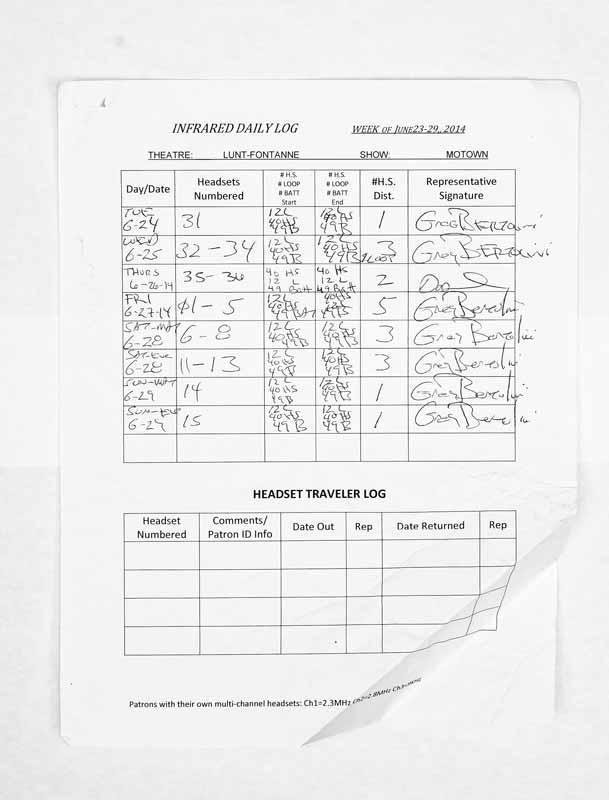 INFRARED DAILY LOG WEEK OF JUNE23-29,, 2014
THEATRE: LUNT-FONTANNE SHOW: MOTOWN
Day/Date Headsets Numbered # H.S. # LOOP # BATT Start # H.S. # LOOP # BATT End #H.S. Dist. Representative Signature
TUE 6-24 31 12L 40HS 49B 12L 40HS 49B 1 Greg Bertolini
WED 6-25 32-34 12L 40HS 49B 12L 40HS 49B 3 1LOOP Greg Bertolini
THURS 6-26-14 35-36 40 HS 12 L 49 Batt 40 HS 12 L 49 Batt 2
FRI 6-27-14 01-5 12L 40HS 49BAT 40HS 12L 49B 5 Greg Bertolini
SAT-MAT 6-28 6-8 12L 40HS 49B 12L 40HS 49B 3 Greg Bertolini
SAT-EVE 6-28 11-13 12L 40HS 49B 12L 40HS 49B 3 Greg Bertolini
SUN-MAT 6-29 14 12L 40HS 49B 12L 40HS 49B 1 Greg Bertolini
SUN-EVE 6-29 15 12L 40HS 49B 12L 40HS 49B 1 Greg Bertolini
HEADSET TRAVELER LOG
Headset Numbered Comments/ Patron ID Info Date Out Rep Date Returned Rep
Patrons with their own multi-channel headsets: Ch1=2.3MHz Ch2=2.8MHz